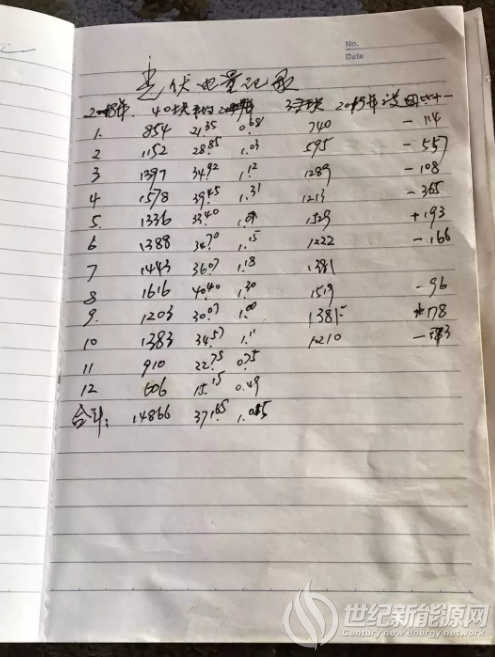 No.
Date
光伏电量记录
2018年. 40块 平均 37块 2019年
1. 854 21.35 0.68 740 -114
2 1152 28.85 1.03 595 -557
3 1397 34.92 1.12 1289 -108
4 1578 39.45 1.31 1213 -365
5. 1336 33.40 1.529 +193
6 1388 34.70 1.15 1222 -166
7 1443 36.07 1.18 1381
8 1616 40.40 1.30 1519 -96
9. 1203 30.07 1.00 1381 +78
10 1383 34.57 1.11 1210
11 910 22.75 0.75
12 606 15.15 0.49
合计: 14866 371.65
世纪新能源网
Century new energy network